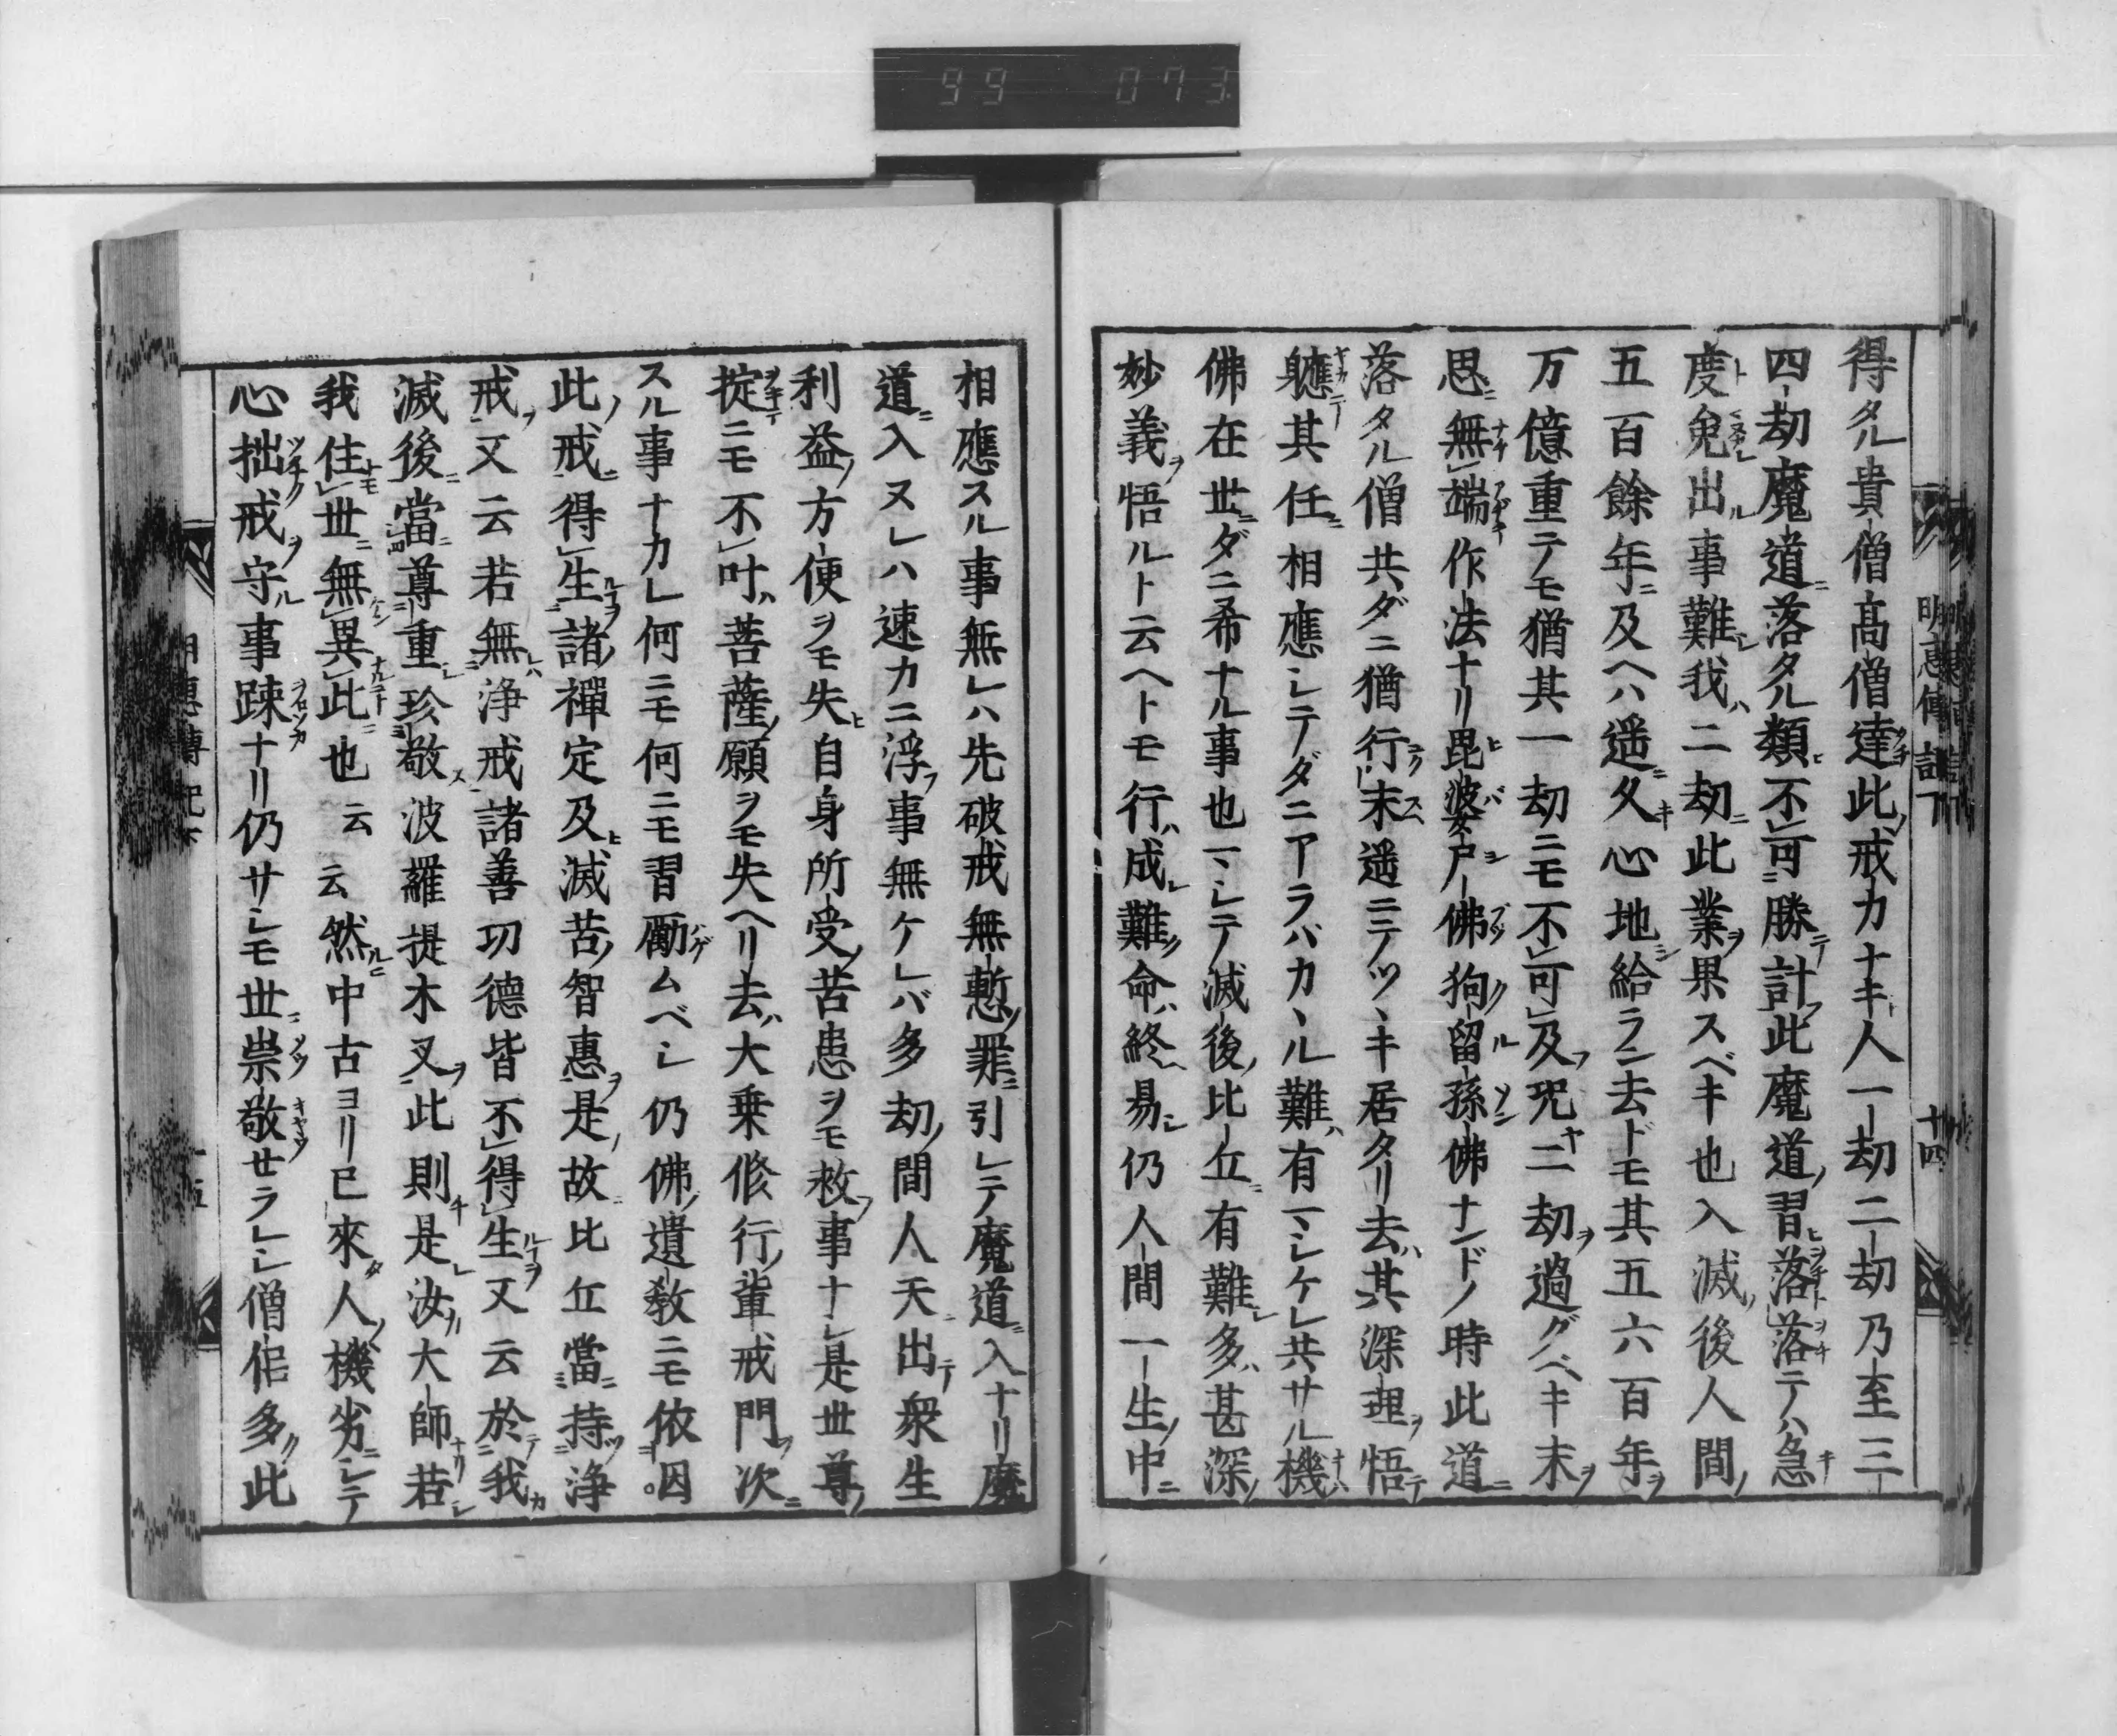 99 073
得タル貴僧高僧達此戒カナキ人一劫二劫乃至三
四劫魔道ニ落タル類ヒ不可勝テ計フ此魔道ノ習ヒ落落テハ急キ
度免出ル事難シ我ハ二劫ニ此業ヲ果スベキ也入滅ノ後人間ノ
五百餘年ニ及ヘハ遥ニ久キ心地シ給ラン去ドモ其五六百年ヲ
万億重テモ猶其一劫ニモ不可及フ况ヤ二劫ヲ過グベキ末ヲ
思ニ無端作法ナリ毘婆尸佛狗留孫佛ナンドノ時此道ニ
落タル僧共ダニ猶行末遥ニテツヽキ居タリ去ハ其深理ヲ悟テ
軈テ其任ニ相應シテダニアラバカヽル難ハ有マシケレ共サル機ハ
佛在世ニダニ希ナル事也マシテ滅後ノ比丘ニ有難シ多ハ甚深ノ
妙義ヲ悟ルト云ヘトモ行ハ成シ難ク命ハ終ヘ易シ仍人間一生ノ中ニ
相應スル事無レハ先破戒無慙ノ罪ニ引レテ魔道ニ入ナリ魔
道ニ入ヌレハ速カニ浮フ事無ケレバ多劫ノ間人天ニ出テ衆生
利益ノ方便ヲモ失ヒ自身所受ノ苦患ヲモ救フ事ナシ是世尊ノ
掟ニモ不叶ハ菩薩ノ願ヲモ失ヘリ去ハ大乗修行ノ輩戒門ヲ次ニ
スル事ナカレ何ニモ何ニモ習勵ムベシ仍佛ノ遺教ニモ依因
此ノ戒ニ得生諸ノ禪定及ヒ滅苦ノ智惠ヲ是ノ故ニ比丘當ニ持ツ浄
戒ヲ又云若無レハ浄戒諸善功德皆不得生又云於テ我カ
滅後ニ當ニ尊重シ珍敬ス波羅提木叉ヲ此則チ是レ汝カ大師ナリ若シ
我住世ニ無異此ニ也云云然ルニ中古ヨリ已來タ人ノ機劣ニシテ
心拙ク戒ヲ守ル事踈ナリ仍サシモ世ニ崇敬セラレシ僧侶多ク此
明恵傳記下
十四